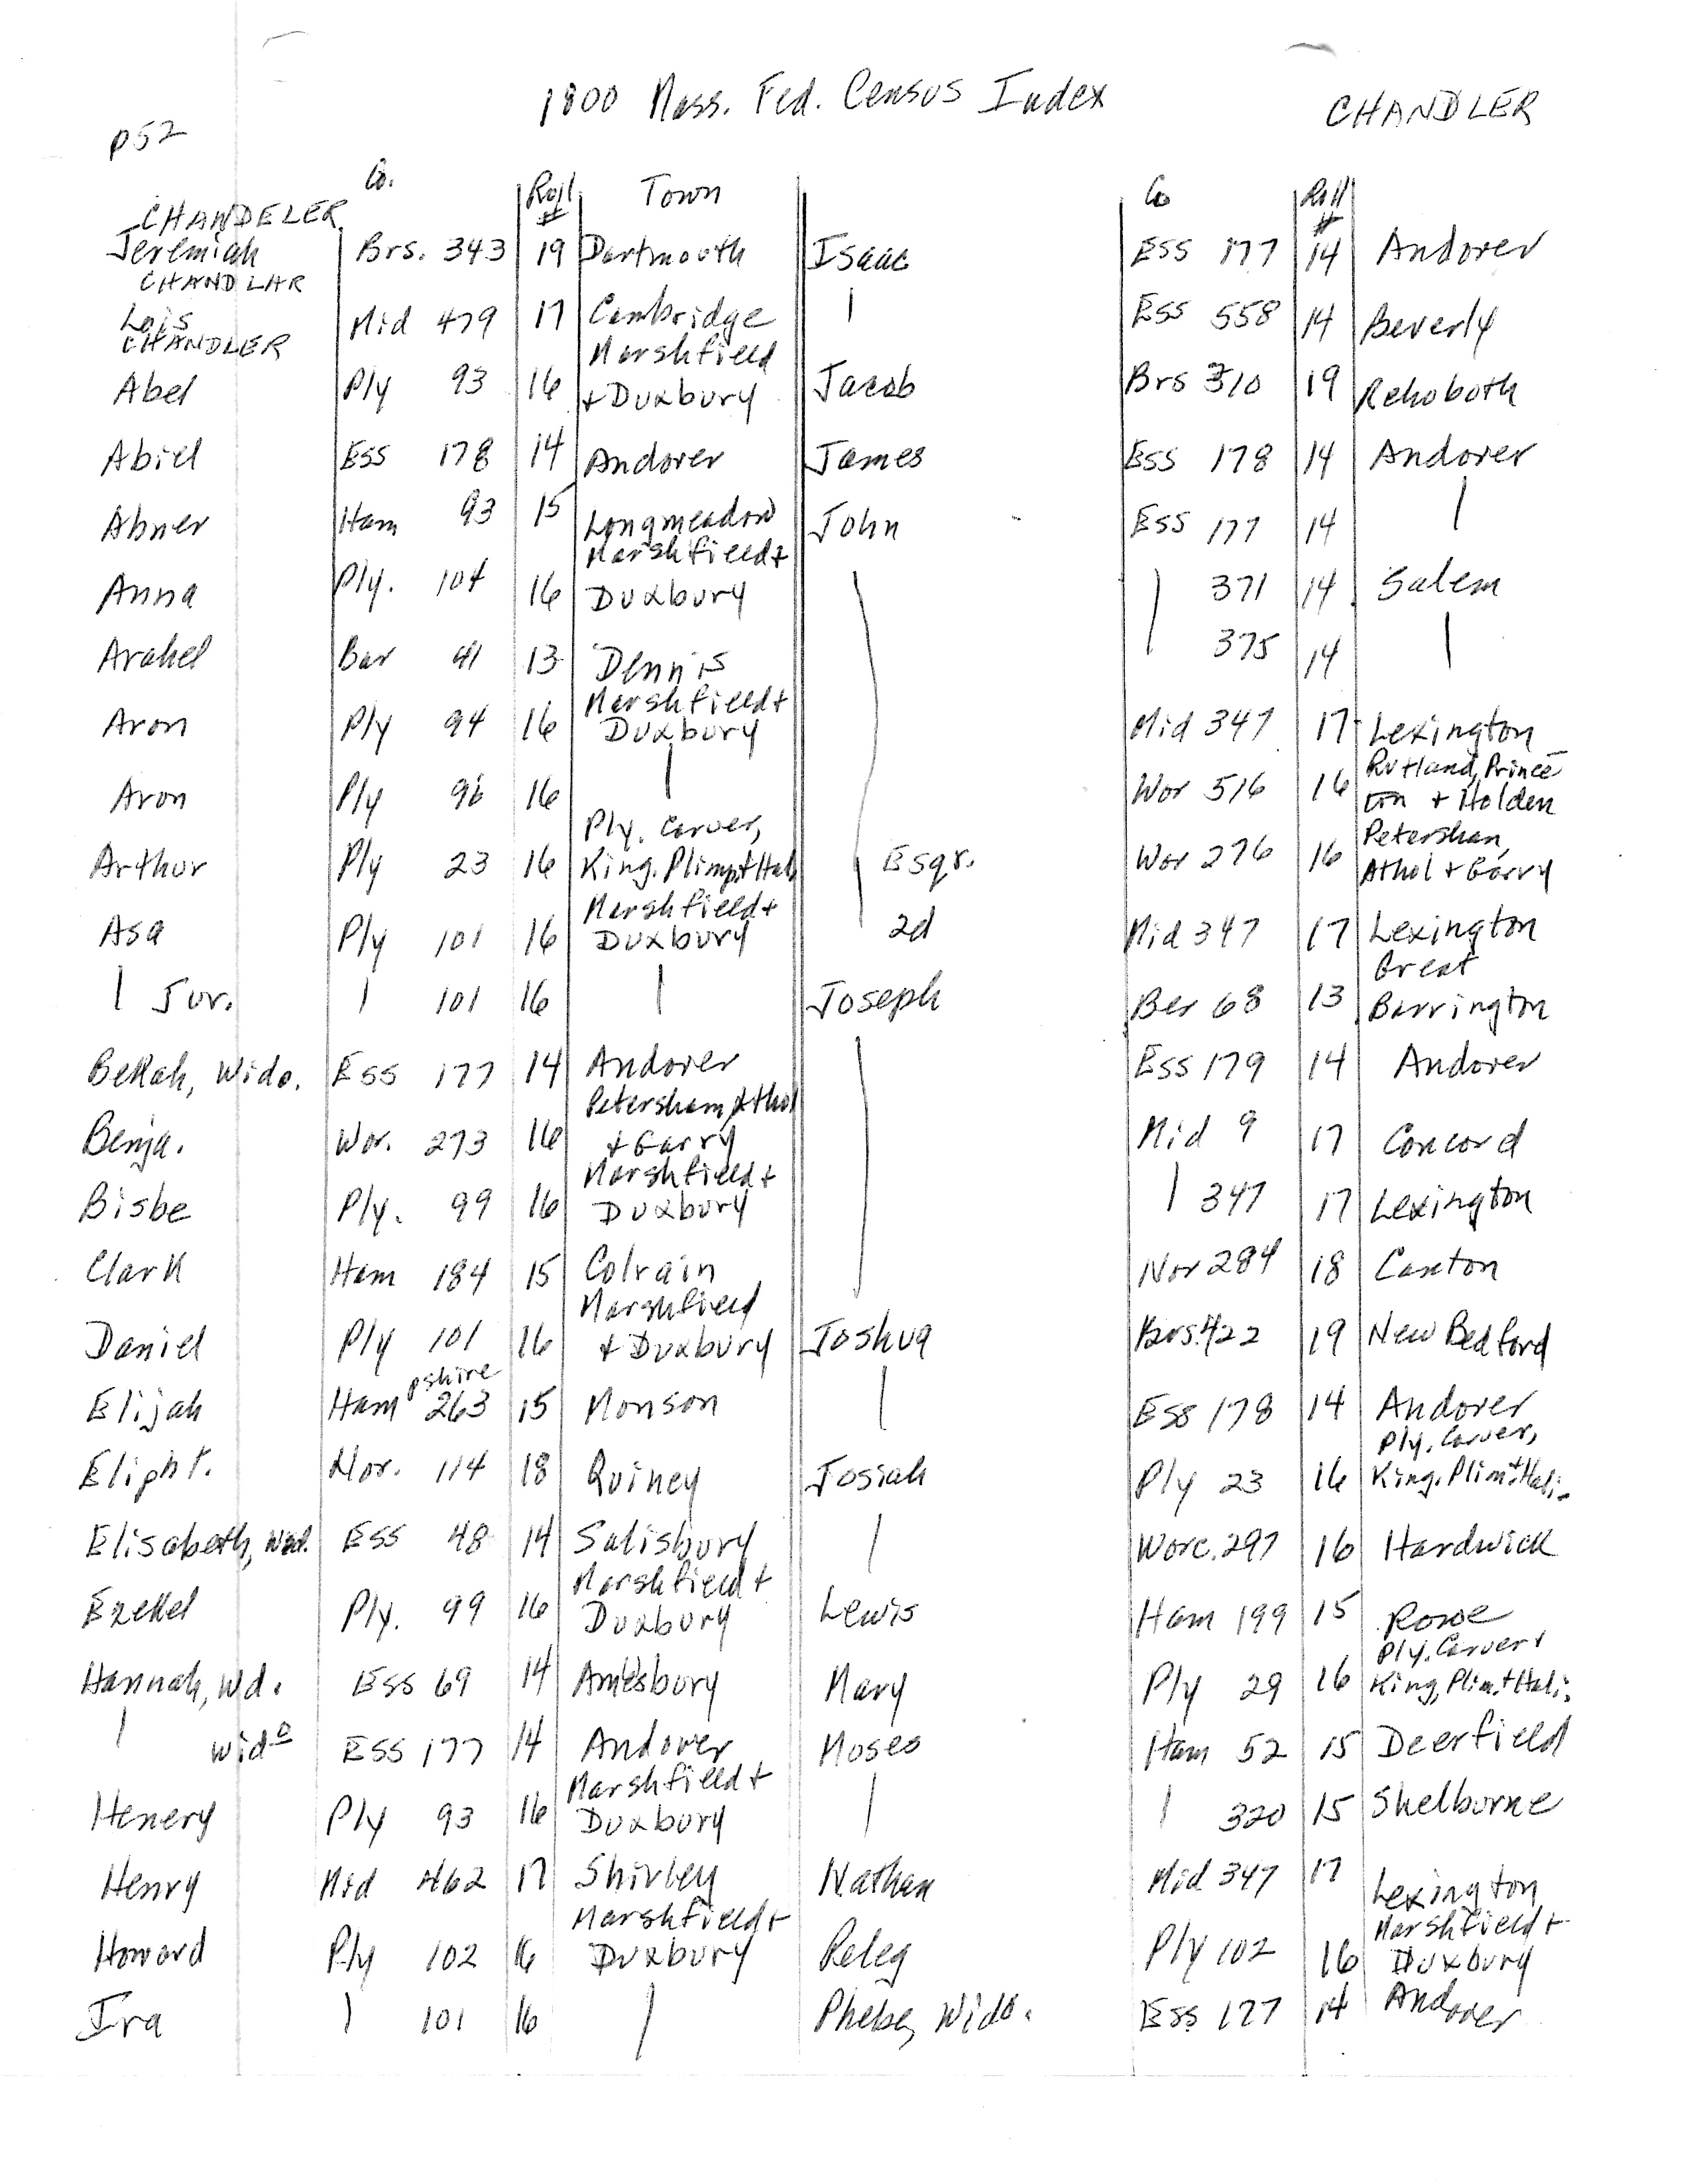 1800 Mass. Fed. Census Index
CHANDLER
p52
Co. Roll # Town
CHANDELER
Jeremiah Brs. 343 19 Dartmouth
CHANDLAR
Lois Mid 479 17 Cambridge
CHANDLER
Marshfield
Abel Ply 93 16 + Duxbury
Abiel Ess 178 14 Andover
Abner Ham 93 15 Longmeadow
Marshfield +
Anna Ply. 104 16 Duxbury
Arahel Bar 41 13 Dennis
Marshfield +
Aron Ply 94 16 Duxbury
Aron Ply 96 16 |
Ply. Carver,
Arthur Ply 23 16 King. Plimpt Hal
Marshfield +
Asa Ply 101 16 Duxbury
| Jur. | 101 16 |
BeKah, Wido. Ess 177 14 Andover
Petersham, Athol
Benja. Wor. 273 16 + Garry
Marshfield +
Bisbe Ply. 99 16 Duxbury
Clark Ham 184 15 Colrain
Marshfield
Daniel Ply 101 16 + Duxbury
Elijah Hampshire 263 15 Monson
Elipht. Nor. 114 18 Quincy
Elisabeth, Wid. Ess 48 14 Salisbury
Marshfield +
Ezekel Ply. 99 16 Duxbury
Hannah, Wd. Ess 69 14 Amesbury
| Wido Ess 177 14 Andover
Marshfield +
Henery Ply 93 16 Duxbury
Henry Mid 462 17 Shirley
Marshfield +
Howard Ply 102 16 Duxbury
Ira | 101 16 |
Co Roll #
Isaac Ess 177 14 Andover
| Ess 558 14 Beverly
Jacob Brs 310 19 Rehoboth
James Ess 178 14 Andover
John Ess 177 14 |
| 371 14 Salem
375 14 |
Mid 347 17 Lexington
Rutland, Prince-
Wor 516 16 ton + Holden
Petersham,
Esqr. Wor 276 16 Athol + Garry
2d Mid 347 17 Lexington
Great
Joseph Ber 68 13 Barrington
Ess 179 14 Andover
Mid 9 17 Concord
| 347 17 Lexington
Nor 284 18 Canton
Joshua Brs. 422 19 New Bedford
| Ess 178 14 Andover
Ply. Carver,
Josiah Ply 23 16 King. Plim. + Hali.
| Worc. 297 16 Hardwick
Lewis Ham 199 15 Rowe
Ply. Carver,
Mary Ply 29 16 King, Plim. + Hali.
Moses Ham 52 15 Deerfield
| | 320 15 Shelburne
Nathan Mid 347 17 Lexington
Marshfield +
Peleg Ply 102 16 Duxbury
Phebe, Wido. Ess 177 14 Andover